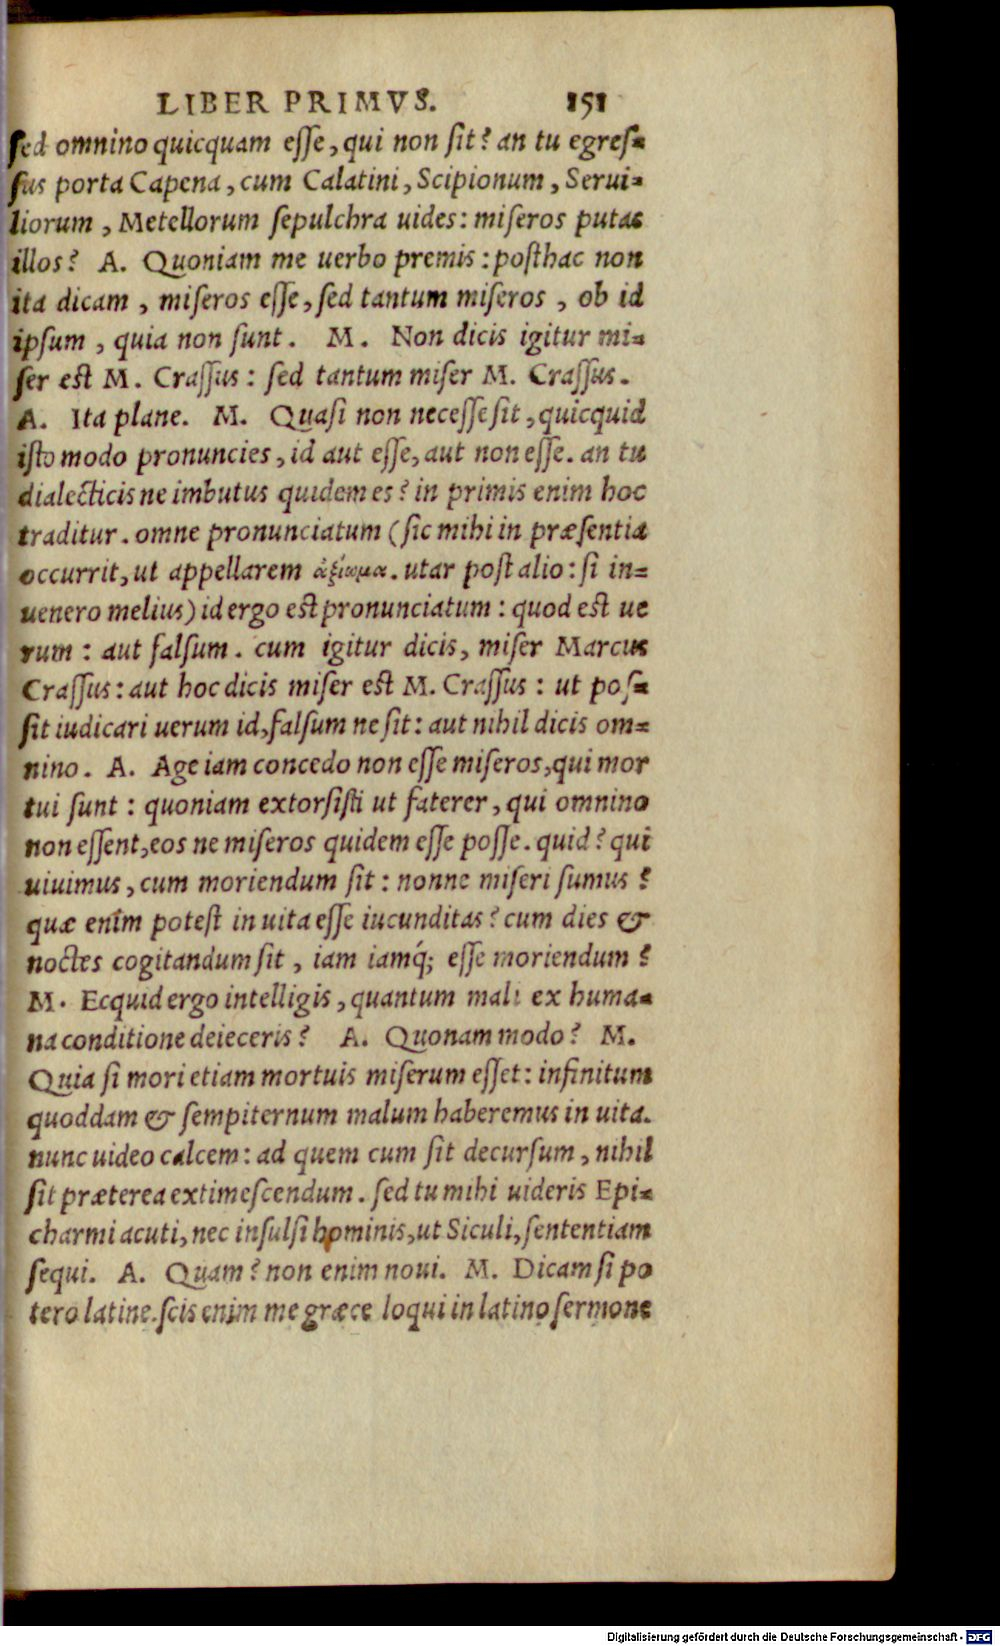 LIBER PRIMVS. 151
sed omnino quicquam esse, qui non sit? an tu egres=
sus porta Capena, cum Calatini, Scipionum, Serui=
liorum, Metellorum sepulchra uides: miseros putas
illos? A. Quoniam me uerbo premis: posthac non
ita dicam, miseros esse, sed tantum miseros, ob id
ipsum, quia non sunt. M. Non dicis igitur mi=
ser est M. Crassus: sed tantum miser M. Crassus.
A. Ita plane. M. Quasi non necesse sit, quicquid
isto modo pronuncies, id aut esse, aut non esse. an tu
dialecticis ne imbutus quidem es? in primis enim hoc
traditur. omne pronunciatum (sic mihi in præsentia
occurrit, ut appellarem ἀξίωμα. utar post alio: si in=
uenero melius) id ergo est pronunciatum: quod est ue
rum: aut falsum. cum igitur dicis, miser Marcus
Crassus: aut hoc dicis miser est M. Crassus: ut pos=
sit iudicari uerum id, falsum ne sit: aut nihil dicis om=
nino. A. Age iam concedo non esse miseros, qui mor
tui sunt: quoniam extorsisti ut faterer, qui omnino
non essent, eos ne miseros quidem esse posse. quid? qui
uiuimus, cum moriendum sit: nonne miseri sumus?
quæ enim potest in uita esse iucunditas? cum dies &
noctes cogitandum sit, iam iamq́; esse moriendum?
M. Ecquid ergo intelligis, quantum mali ex huma=
na conditione deieceris? A. Quonam modo? M.
Quia si mori etiam mortuis miserum esset: infinitum
quoddam & sempiternum malum haberemus in uita.
nunc uideo calcem: ad quem cum sit decursum, nihil
sit præterea extimescendum. sed tu mihi uideris Epi=
charmi acuti, nec insulsi hominis, ut Siculi, sententiam
sequi. A. Quam? non enim noui. M. Dicam si po
tero latine. scis enim me græce loqui in latino sermone
Digitalisierung gefördert durch die Deutsche Forschungsgemeinschaft - DFG